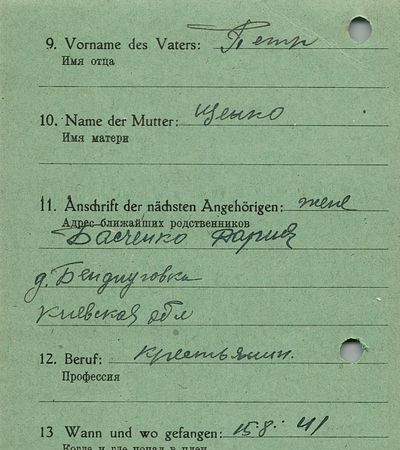 9. Vorname des Vaters: Петр
Имя отца
10. Name der Mutter: Ценко
Имя матери
11. Anschrift der nächsten Angehörigen: жене
Адрес ближайших родственников
Басченко Дария
д. Бендюговка
Киевская обл
12. Beruf: крестьянин.
Профессия
13 Wann und wo gefangen: 15.8. 41
Когда и где попал в плен